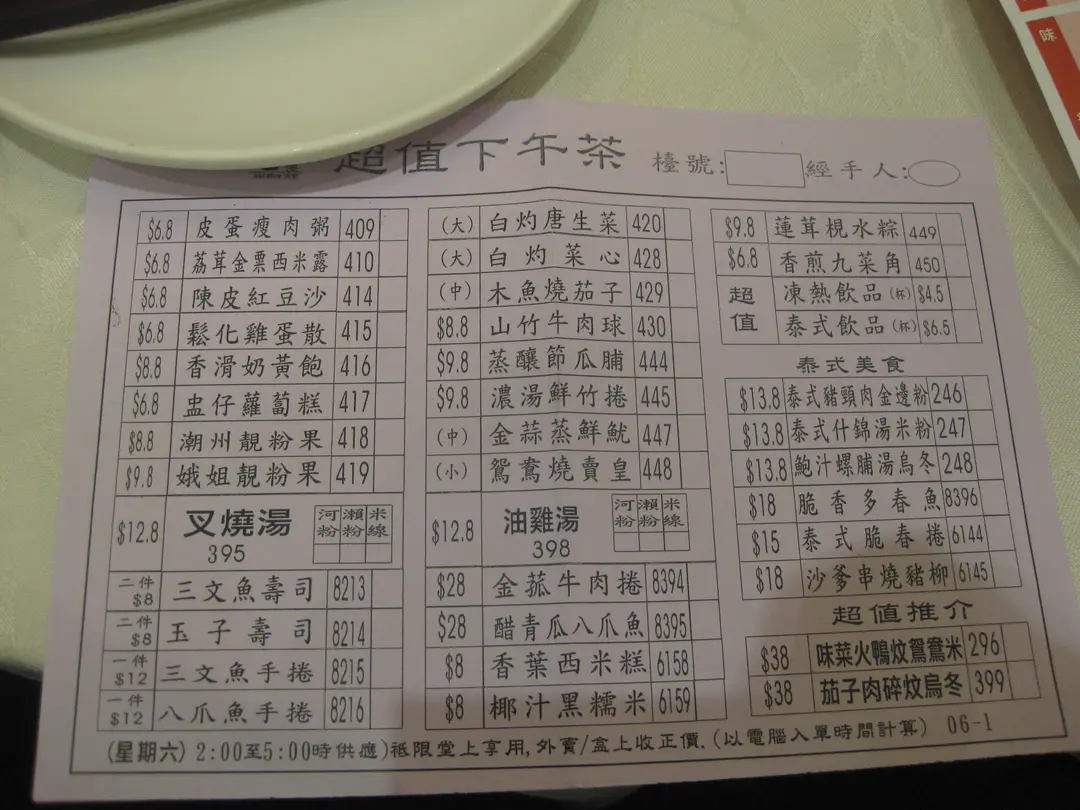 超值下午茶 檯號: 經手人:
$6.8 皮蛋瘦肉粥 409
$6.8 荔茸金栗西米露 410
$6.8 陳皮紅豆沙 414
$6.8 鬆化雞蛋散 415
$8.8 香滑奶黃飽 416
$6.8 盅仔蘿蔔糕 417
$8.8 潮州靚粉果 418
$9.8 娥姐靚粉果 419
$12.8 叉燒湯 395 河粉 瀨粉 米線
二件 $8 三文魚壽司 8213
二件 $8 玉子壽司 8214
一件 $12 三文魚手捲 8215
一件 $12 八爪魚手捲 8216
(大) 白灼唐生菜 420
(大) 白灼菜心 428
(中) 木魚燒茄子 429
$8.8 山竹牛肉球 430
$9.8 蒸釀節瓜脯 444
$9.8 濃湯鮮竹捲 445
(中) 金蒜蒸鮮魷 447
(小) 鴛鴦燒賣皇 448
$12.8 油雞湯 398 河粉 瀨粉 米線
$28 金菰牛肉捲 8394
$28 醋青瓜八爪魚 8395
$8 香葉西米糕 6158
$8 椰汁黑糯米 6159
$9.8 蓮茸梘水粽 449
$6.8 香煎九菜角 450
超值 凍熱飲品(杯) $4.5
泰式飲品(杯) $6.5
泰式美食
$13.8 泰式豬頸肉金邊粉 246
$13.8 泰式什錦湯米粉 247
$13.8 鮑汁螺脯湯烏冬 248
$18 脆香多春魚 8396
$15 泰式脆春捲 6144
$18 沙爹串燒豬柳 6145
超值推介
$38 味菜火鴨炆鴛鴦米 296
$38 茄子肉碎炆烏冬 399
(星期六) 2:00至5:00時供應)祗限堂上享用,外賣/盒上收正價.(以電腦入單時間計算) 06-1
味